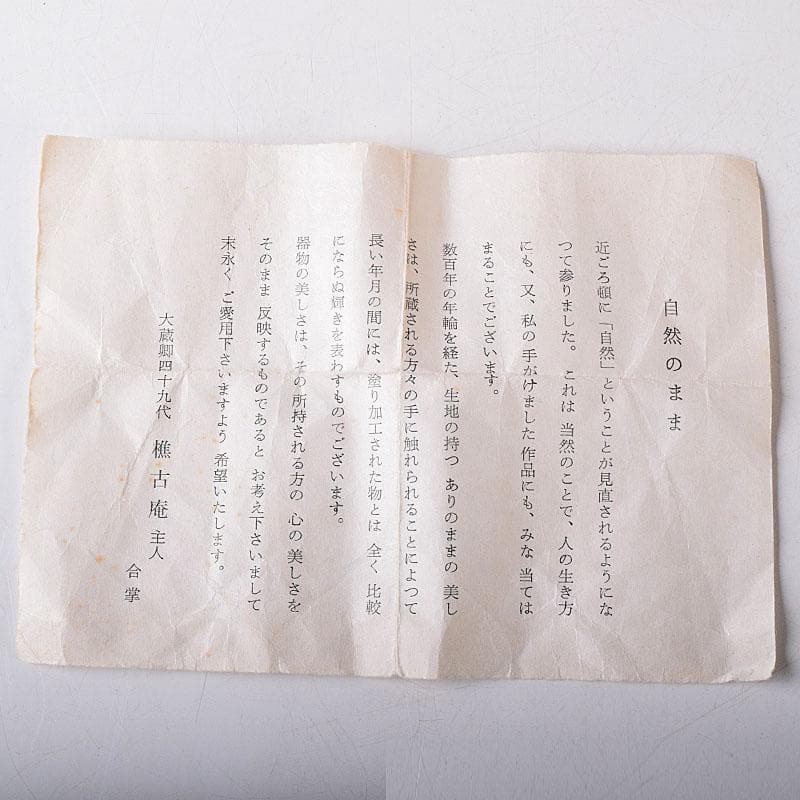 自然のまま
近ごろ頓に「自然」ということが見直されるようにな
つて参りました。これは 当然のことで、人の生き方
にも、又、私の手がけました 作品にも、みな 当ては
まることでございます。
数百年の年輪を経た、生地の持つ ありのままの 美し
さは、所蔵される方々の手に触れられることによつて
長い年月の間には、塗り加工された物とは 全く 比較
にならぬ輝きを表わすものでございます。
器物の美しさは、その所持される方の 心の 美しさを
そのまま 反映するものであると お考え下さいまして
末永く ご愛用下さいますよう 希望いたします。
大蔵卿四十九代 樵古庵 主人
合掌